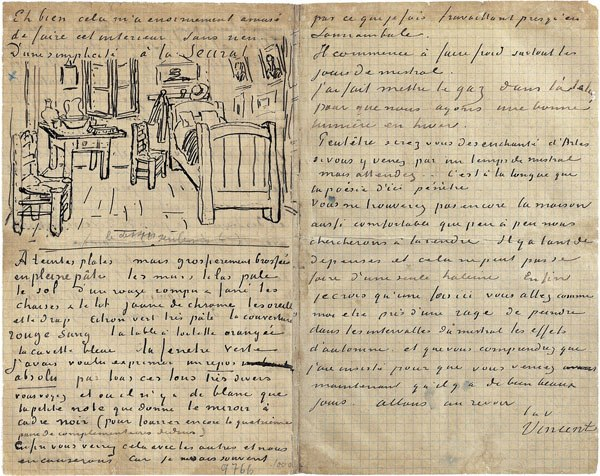 Eh bien cela m'a enormement amusé
de faire cet interieur sans rien
D'une simplicité à la Seurat
A teintes plates mais grossierement brossées
en pleine pâte les murs lilas pale
le sol d'un rouge rompu & fané les
chaises & le lit jaune de chrome les oreillers
et le drap citron vert très pâle la couverture
rouge sang la table à toilette orangée
la cuvette bleue la fenetre verte
J'avais voulu exprimer un repos
absolu par tous ces tons très divers
vous voyez et ou il n'y a de blanc que
la petite note que donne le miroir à
cadre noir (pour fourrer encore la quatrième
paire de complementaires dedans)
Enfin vous verrez cela avec les autres et nous
en causerons car je ne sais souvent
9766
pas ce que je fais travaillant presqu'en
somnambule.
Il commence à faire froid surtout les
jours de mistral.
J'ai fait mettre le gaz dans l'atelier
pour que nous ayons une bonne
lumière en hiver.
Peutêtre serez vous desenchanté d'Arles
si vous y venez par un temps de mistral
mais attendez... C'est à la longue que
la poésie d'ici pénètre
Vous ne trouverez pas encore la maison
aussi comfortable que peu à peu nous
chercherons à la rendre. Il y a tant de
depenses et cela ne peut pas se
faire d'une seule haleine Enfin
je crois qu'une fois ici vous allez comme
moi etre pris d'une rage de peindre
dans les intervalles du mistral les effets
d'automne et que vous comprendrez que
j'ai insisté pour que vous veniez
maintenant qu'il y a de bien beaux
jours. allons au revoir
t. à v.
Vincent